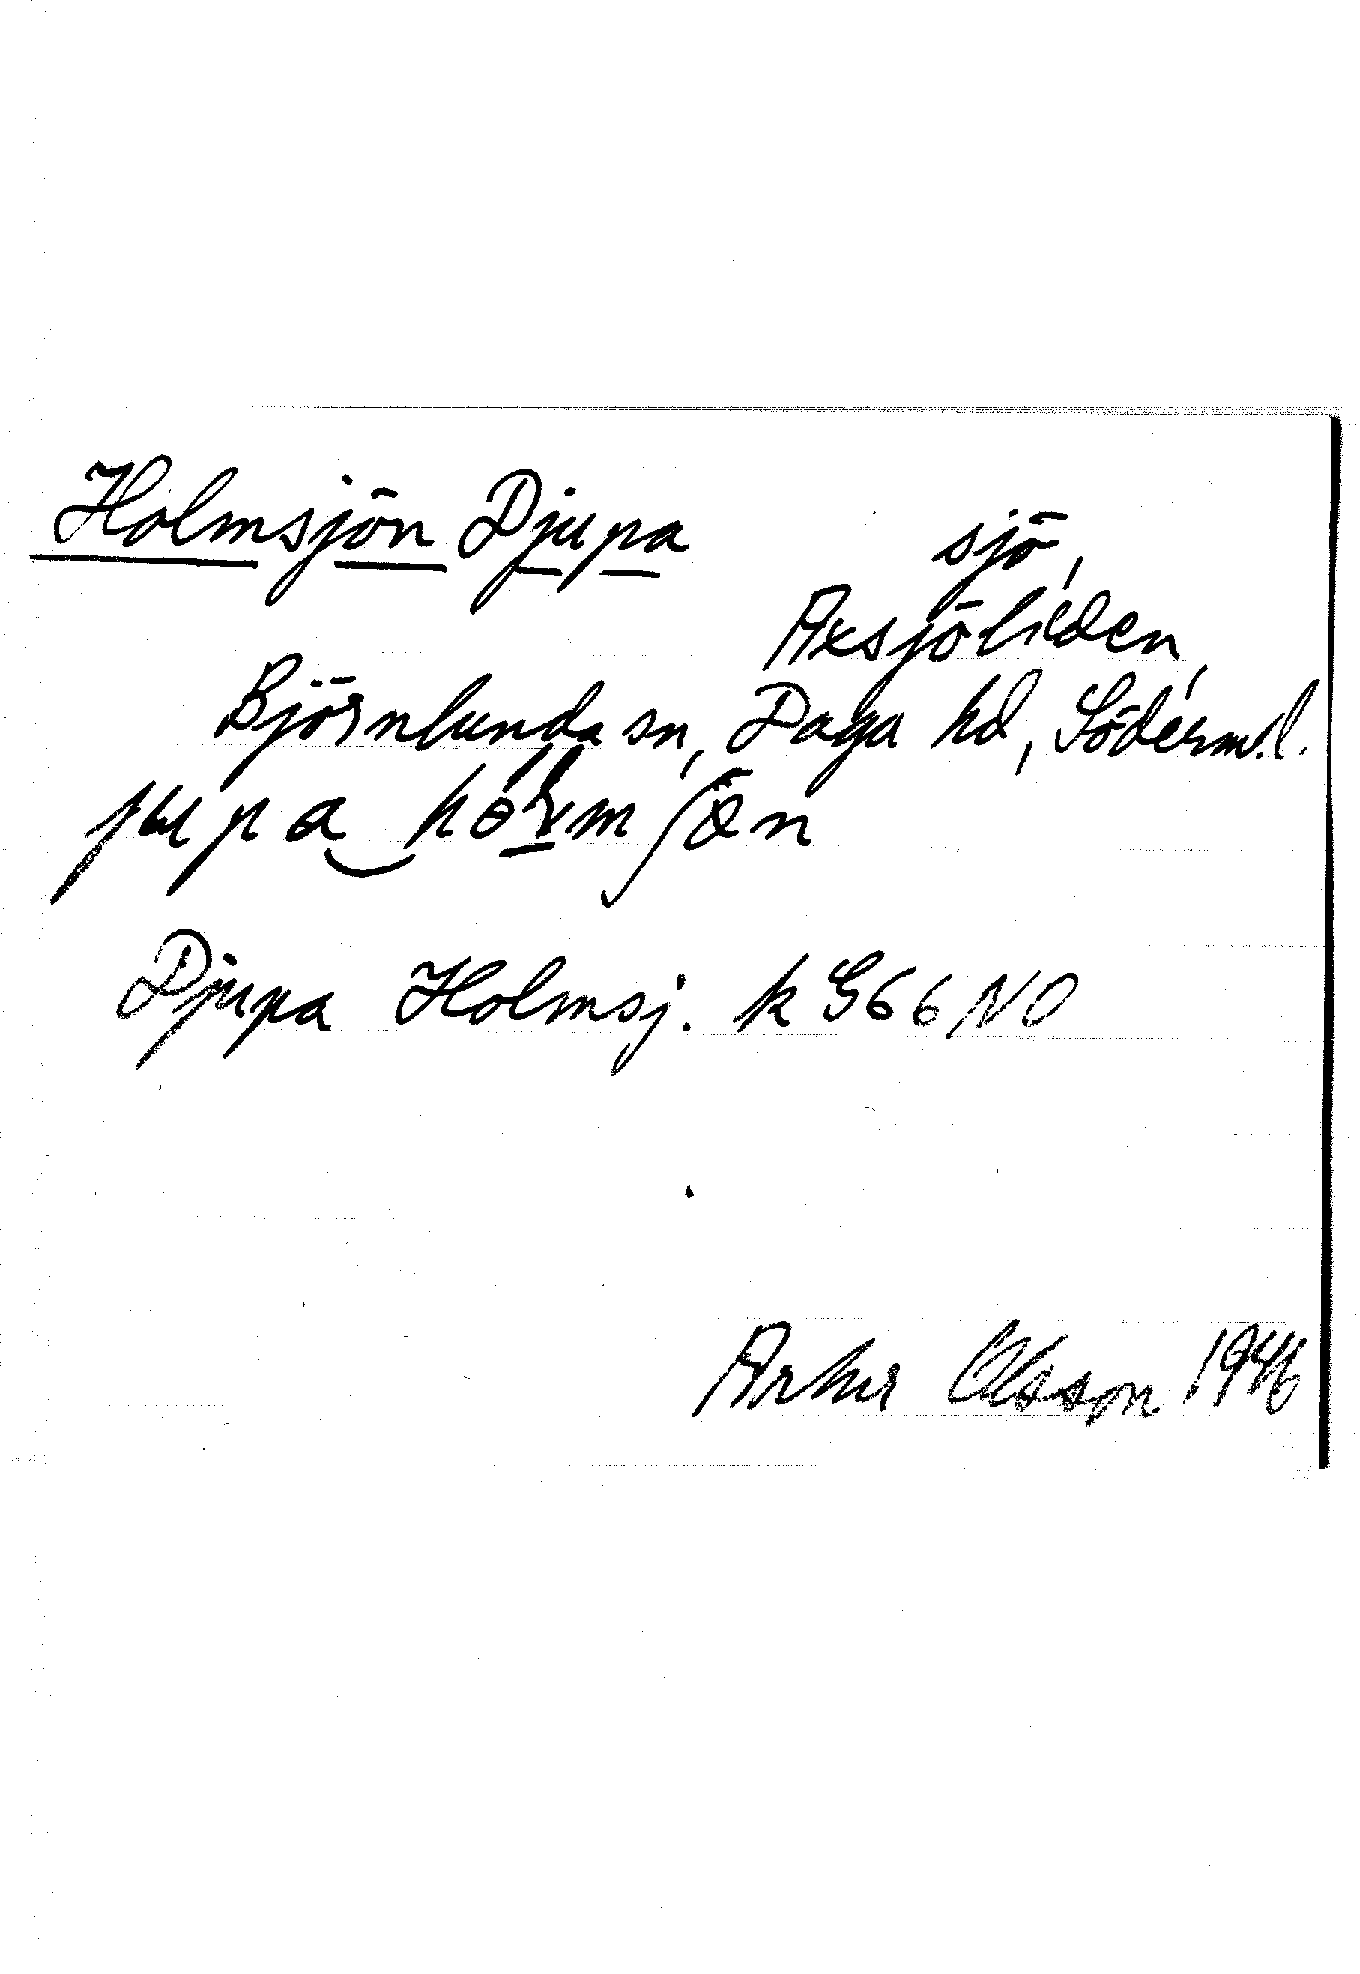 Holmsjön Djupa sjö,
Axsjöliden,
Björnlunda sn, Daga hd, Söderm.l.
Djupa Holmsj. k G66 NO
Artur Olsson 1946